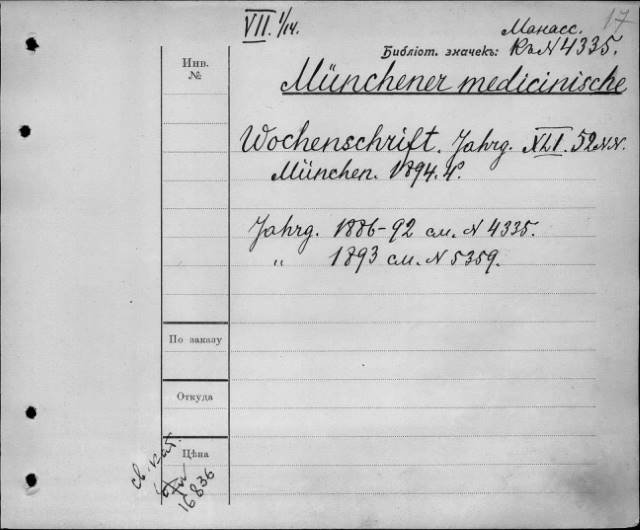 17
VII. 1/14.
Манасс.
Библіот. значекъ: Къ N 4335.
Инв. №
Münchener medicinische
Wochenschrift. Jahrg. XLI. 52 N.N.
München. 1894. 4°.
Jahrg. 1886-92 см. N 4335.
„ 1893 см. N 5359.
По заказу
Откуда
Цѣна
св. кат.
16836